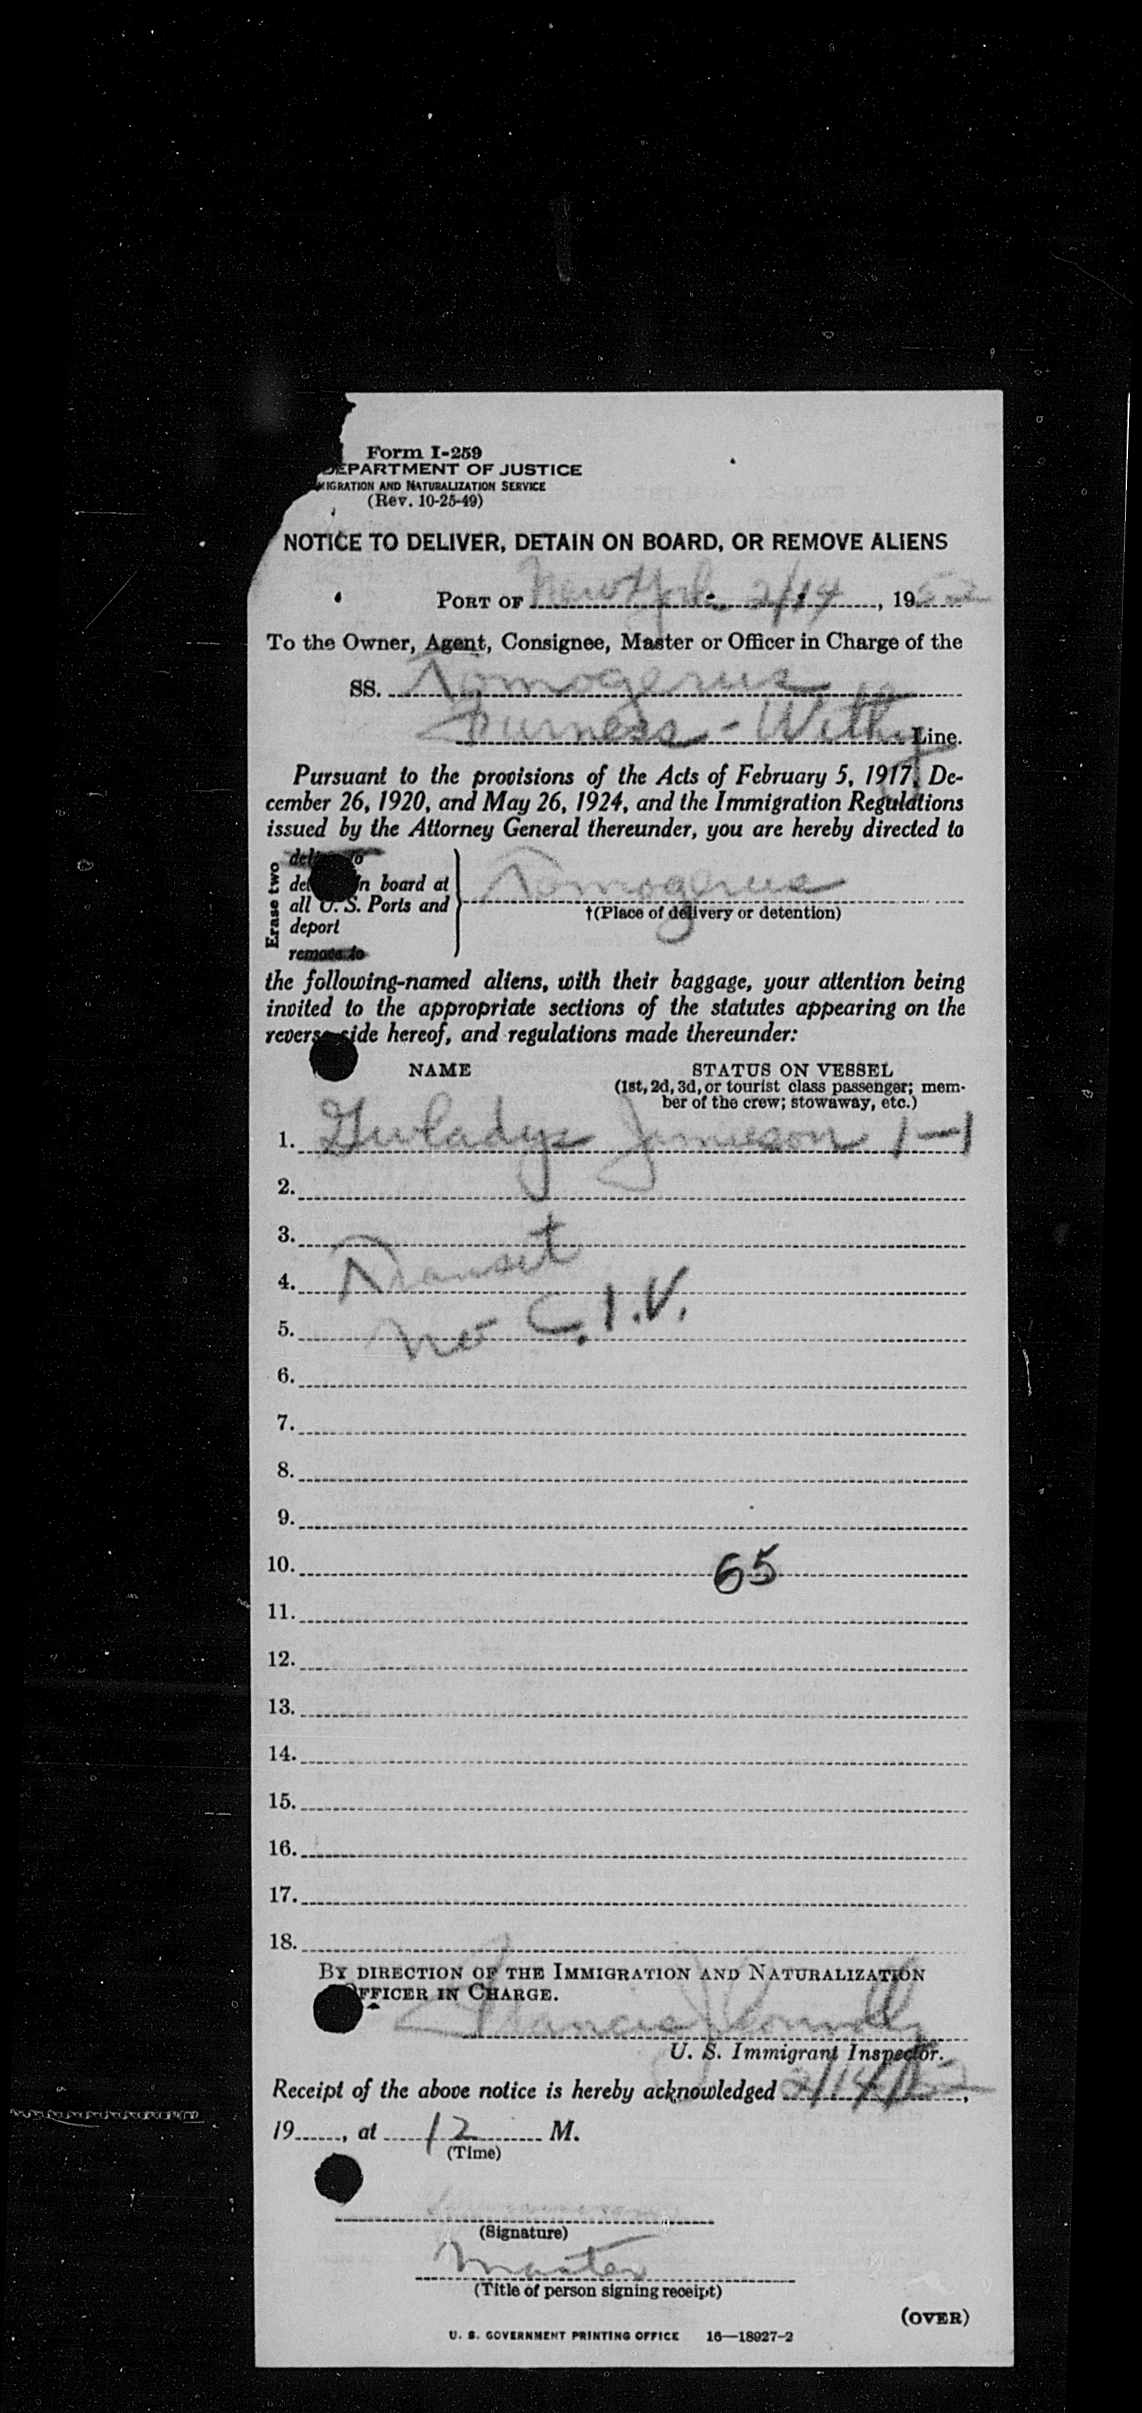 Form I-259
DEPARTMENT OF JUSTICE
IGRATION AND NATURALIZATION SERVICE
(Rev. 10-25-49)
NOTICE TO DELIVER, DETAIN ON BOARD, OR REMOVE ALIENS
PORT OF New York 2/14, 1952
To the Owner, Agent, Consignee, Master or Officer in Charge of the
SS. Romogerus
Furness-Withy Line.
Pursuant to the provisions of the Acts of February 5, 1917, De-
cember 26, 1920, and May 26, 1924, and the Immigration Regulations
issued by the Attorney General thereunder, you are hereby directed to
Erase two
deliver to
detain on board at
all U. S. Ports and
deport
remove to
Romogerus
†(Place of delivery or detention)
the following-named aliens, with their baggage, your attention being
invited to the appropriate sections of the statutes appearing on the
reverse side hereof, and regulations made thereunder:
NAME STATUS ON VESSEL
(1st, 2d, 3d, or tourist class passenger; mem-
ber of the crew; stowaway, etc.)
1. Gwladys Jamieson 1-1
2.
3.
4. Transit
5. no C.I.V.
6.
7.
8.
9.
10. 65
11.
12.
13.
14.
15.
16.
17.
18.
BY DIRECTION OF THE IMMIGRATION AND NATURALIZATION
OFFICER IN CHARGE.
Francis J Connolly
U. S. Immigrant Inspector.
Receipt of the above notice is hereby acknowledged 2/14/52,
19......, at 12 M.
(Time)
(Signature)
Master
(Title of person signing receipt)
(OVER)
U. S. GOVERNMENT PRINTING OFFICE 16—18927-2